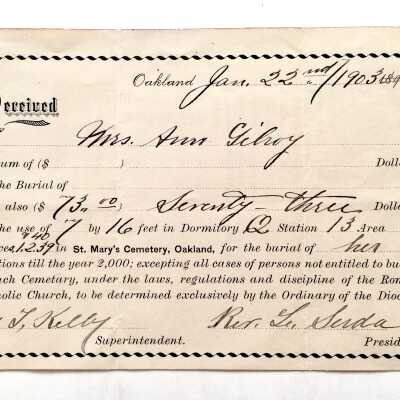 Oakland, Jan. 22nd/1903 189
Received
Mrs. Ann Gilroy
um of ($ ) Dolla
the Burial of
also ($ 73.00) Seventy-three Dolla
the use of 7 by 16 feet in Dormitory 62 Station 13 Area
1239 40 in St. Mary's Cemetery, Oakland, for the burial of her
tions till the year 2,000; excepting all cases of persons not entitled to bu
uch Cemetary, under the laws, regulations and discipline of the Rom
olic Church, to be determined exclusively by the Ordinary of the Dioc
T. Kelby Rev. L. Serda
Superintendent. Presid